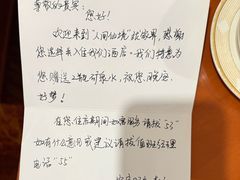 尊敬的贵宾:
您好!
欢迎来到"人间仙境"张家界,感谢
您选择入住我们酒店。我们特意为
您赠送2瓶矿泉水,祝您晚安
好梦!
在您住店期间如需服务请拨"53"
如有什么意见或建议请拨值班经理
电话"55"